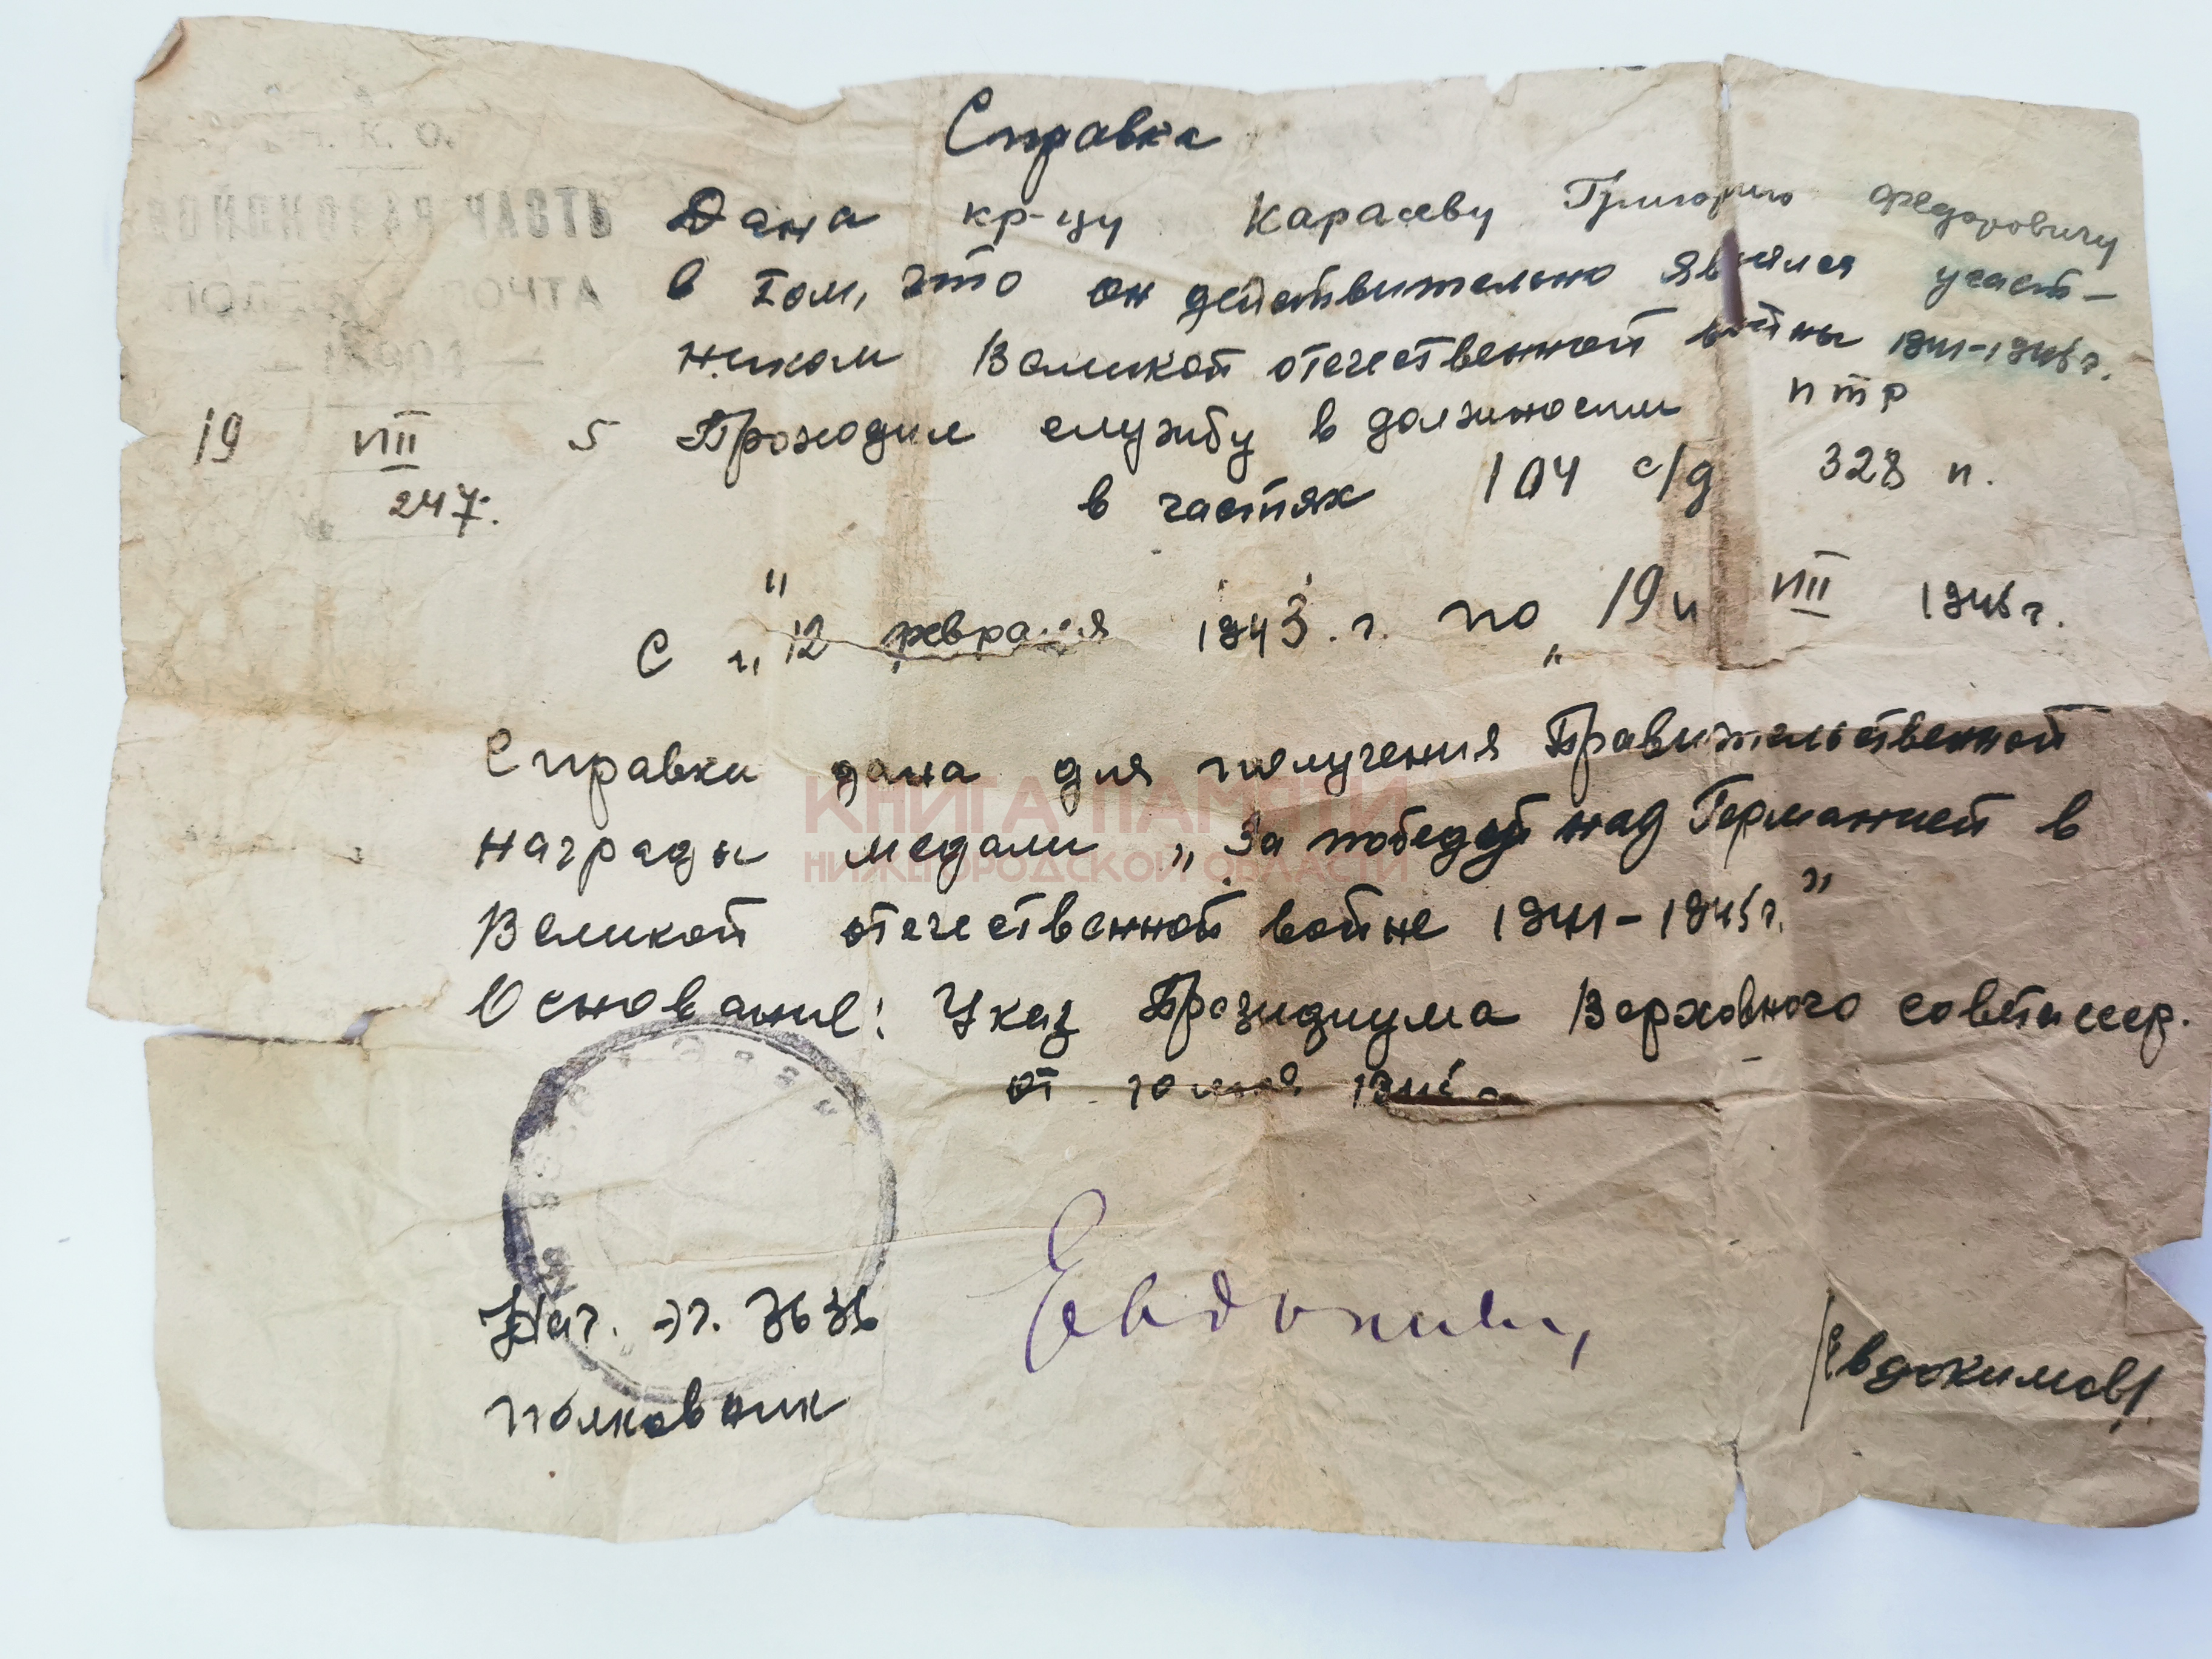 Справка
Н. К. О.
ЧАСТЬ
ПОЧТА
Дана кр-цу Карасеву Григорию Федоровичу
в том, что он действительно являлся участ-
ником Великой отечественной войны 1941-1945г.
19 VIII 5 Проходил службу в должности птр
247.
в частях 104 с/д 328 п.
с "12 февраля 1943 г. по "19" VIII 1945г.
Справка дана для получения Правительственной
награды медали „За победу над Германией в
Великой отечественной войне 1941-1945г."
КНИГА ПАМЯТИ
НИЖЕГОРОДСКОЙ ОБЛАСТИ
Основание: Указ Президиума Верховного совета ссср.
от
Нач.
полковник
/Евдокимов/.